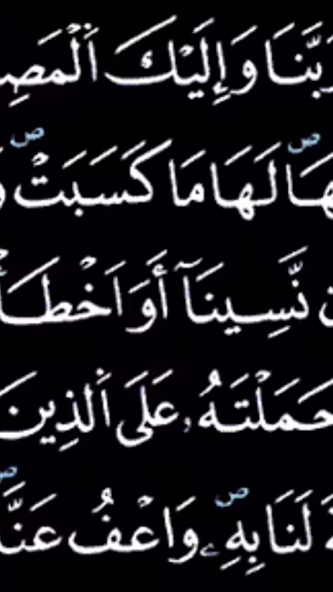 رَبَّنَا وَإِلَيْكَ ٱلْمَصِ
هَا ۖ لَهَا مَا كَسَبَتْ ۖ وَ
ن نَّسِينَآ أَوْ أَخْطَأْ
حَمَلْتَهُۥ عَلَى ٱلَّذِينَ
ةَ لَنَا بِهِۦ ۖ وَٱعْفُ عَنَّا ۖ